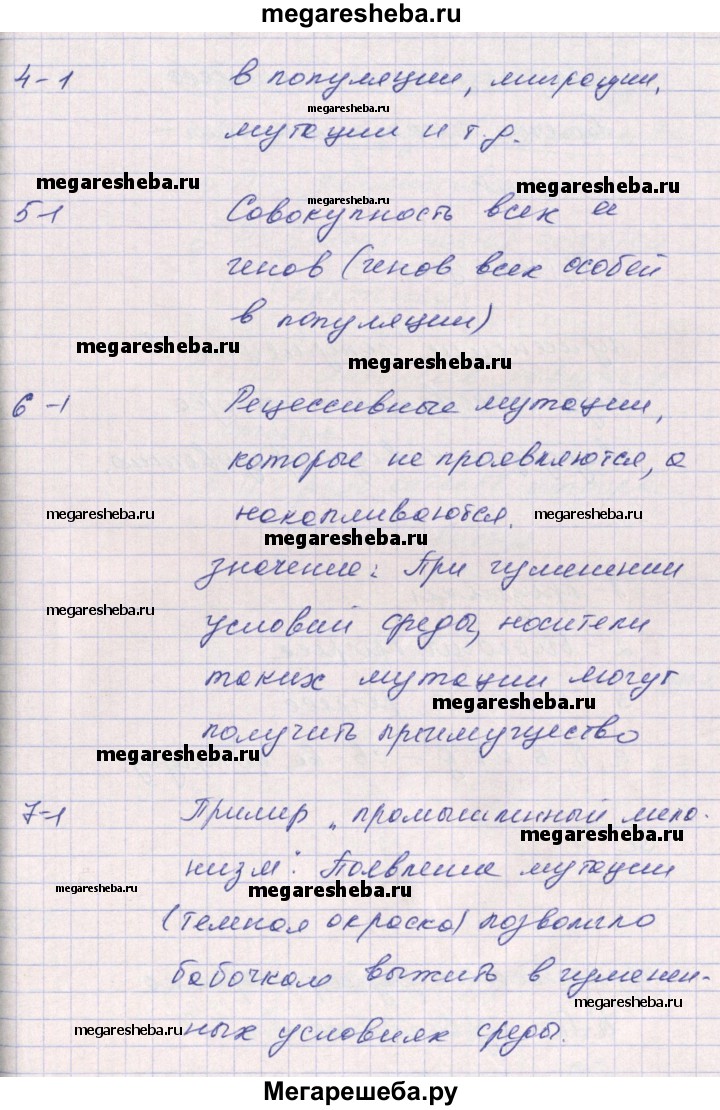 megaresheba.ru
4-1 в популяции, миграции,
megaresheba.ru
мутации и т.д.
megaresheba.ru megaresheba.ru
megaresheba.ru
5-1 Совокупность всех ее
генов (генов всех особей
в популяции)
megaresheba.ru
megaresheba.ru
6-1 Рецессивные мутации,
которые не проявляются, а
накапливаются.
megaresheba.ru megaresheba.ru
megaresheba.ru
значение: При изменении
megaresheba.ru
условий среды, носители
таких мутации могут
megaresheba.ru
получить преимущество
megaresheba.ru
7-1 Пример "промышленный мела-
megaresheba.ru
низм". Появление мутации
megaresheba.ru megaresheba.ru
(темная окраска) позволило
бабочкам выжить в изменен-
megaresheba.ru
megaresheba.ru
ных условиях среды.
megaresheba.ru
Мегарешеба.ру